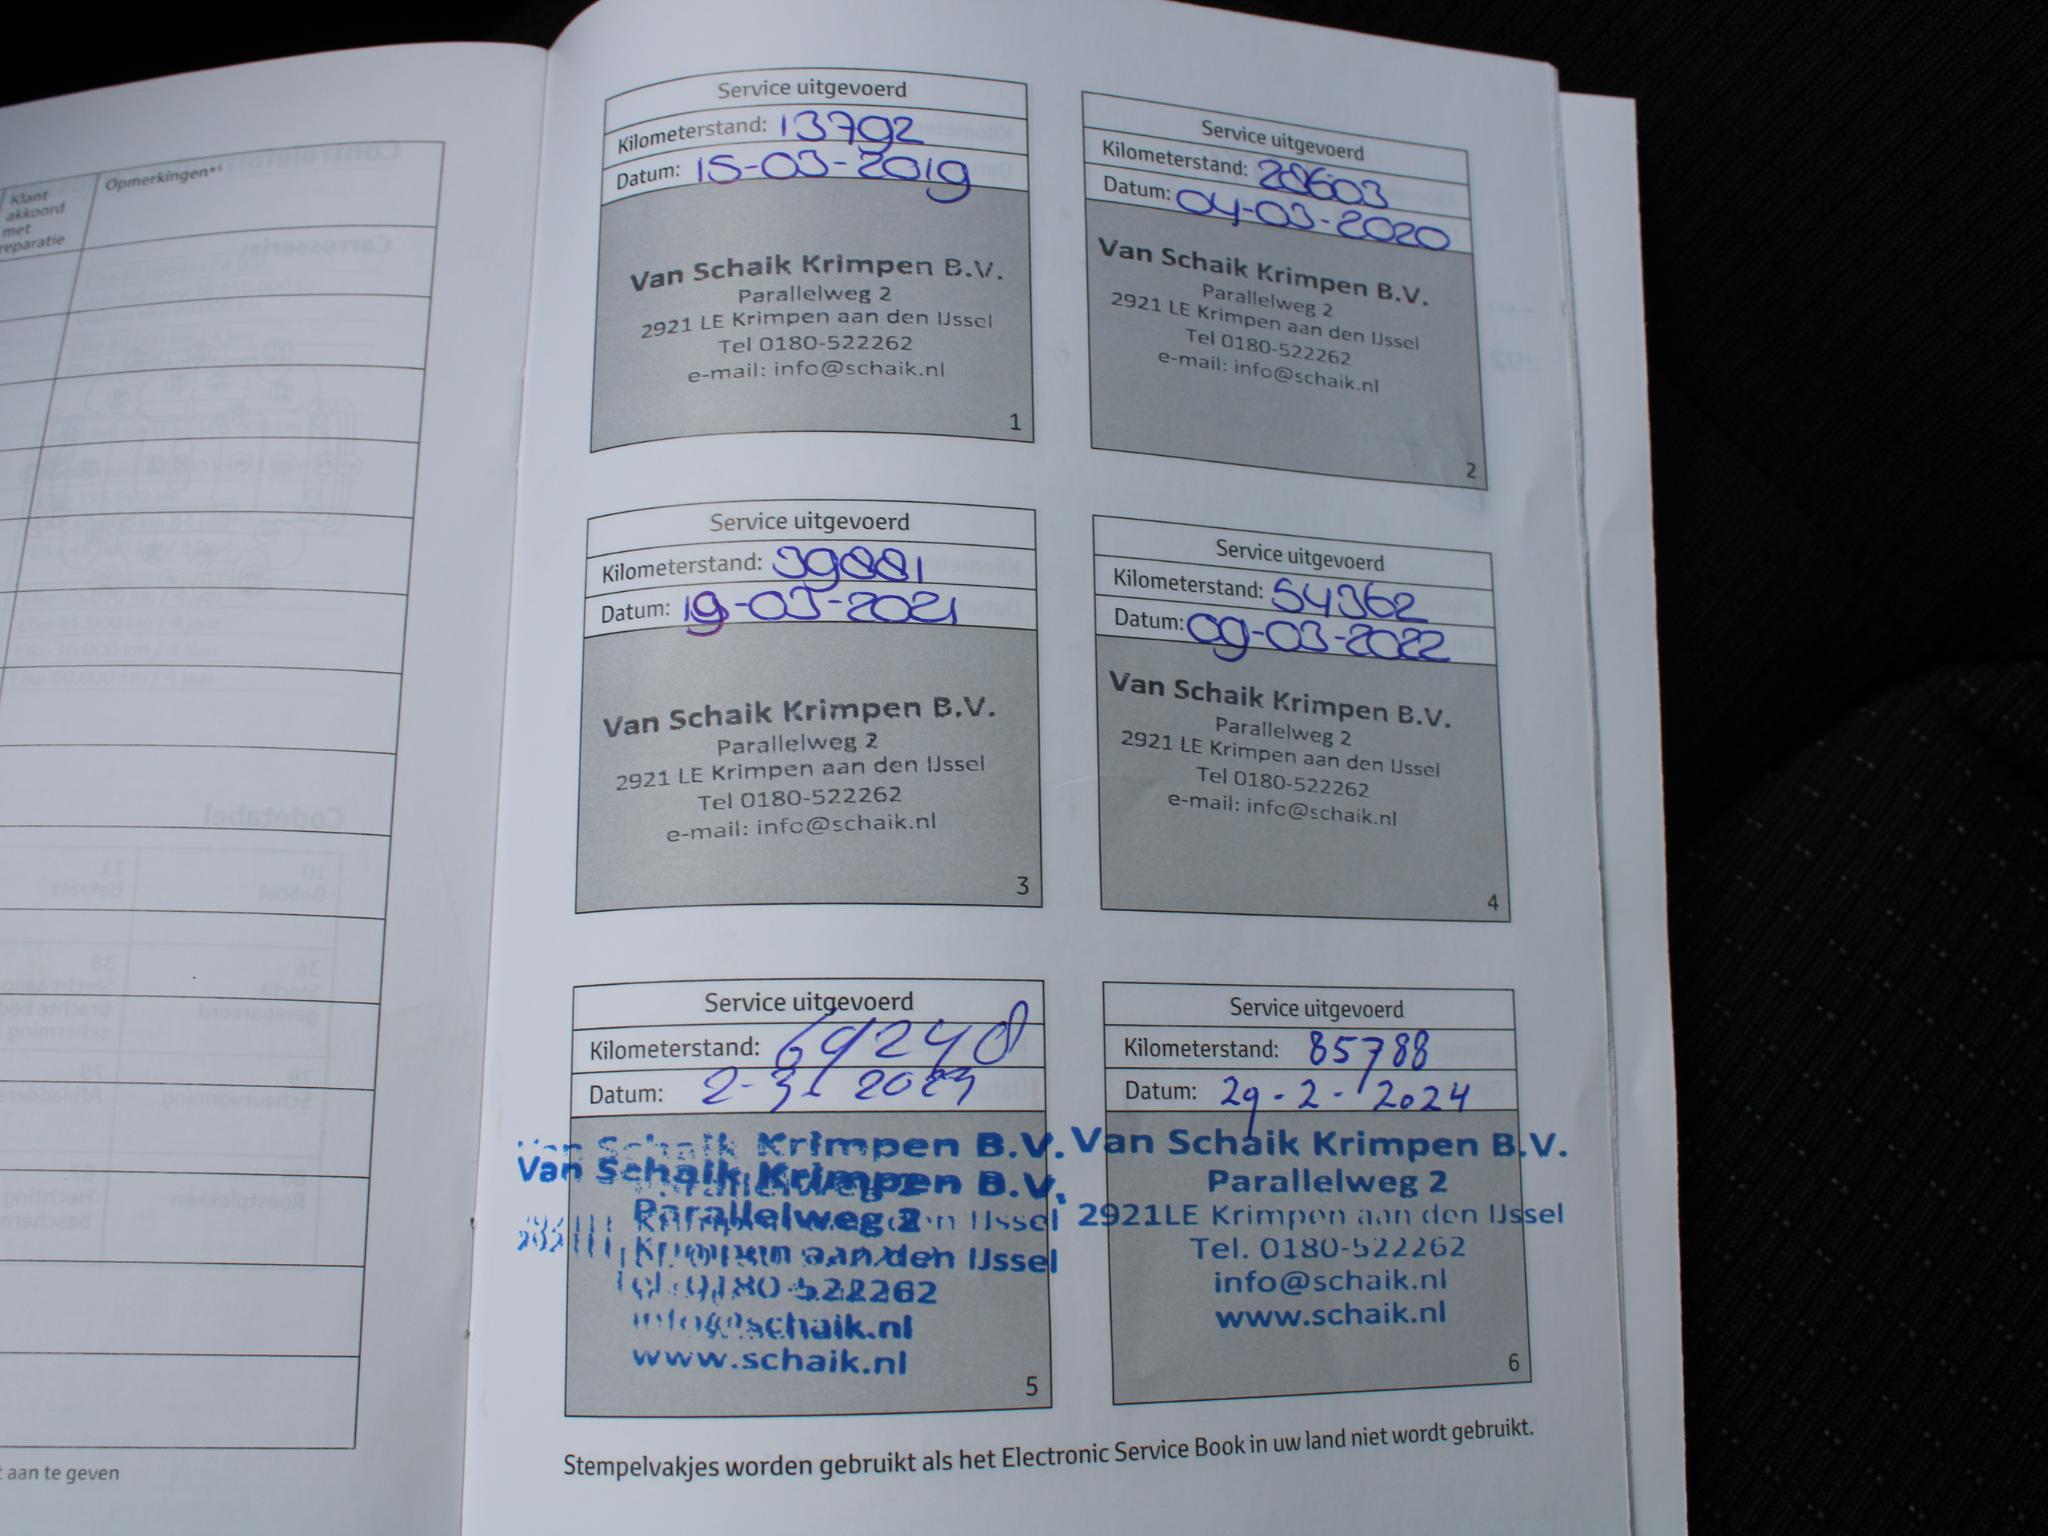 Klant
akkoord
met
reparatie
Opmerkingen*¹
t aan te geven
Service uitgevoerd
Kilometerstand: 13792
Datum: 15-03-2019
Van Schaik Krimpen B.V.
Parallelweg 2
2921 LE Krimpen aan den IJssel
Tel 0180-522262
e-mail: info@schaik.nl
1
Service uitgevoerd
Kilometerstand: 28603
Datum: 04-03-2020
Van Schaik Krimpen B.V.
Parallelweg 2
2921 LE Krimpen aan den IJssel
Tel 0180-522262
e-mail: info@schaik.nl
2
Service uitgevoerd
Kilometerstand: 39881
Datum: 19-03-2021
Van Schaik Krimpen B.V.
Parallelweg 2
2921 LE Krimpen aan den IJssel
Tel 0180-522262
e-mail: info@schaik.nl
3
Service uitgevoerd
Kilometerstand: 54362
Datum: 09-03-2022
Van Schaik Krimpen B.V.
Parallelweg 2
2921 LE Krimpen aan den IJssel
Tel 0180-522262
e-mail: info@schaik.nl
4
Service uitgevoerd
Kilometerstand: 69240
Datum: 2-3- 2023
Van Schaik Krimpen B.V.
Van Schaik Krimpen B.V.
Parallelweg 2
Krimpen aan den IJssel
Tel. 0180-522262
info@schaik.nl
www.schaik.nl
5
Service uitgevoerd
Kilometerstand: 85788
Datum: 29-2-2024
Van Schaik Krimpen B.V.
Parallelweg 2
2921LE Krimpen aan den IJssel
Tel. 0180-522262
info@schaik.nl
www.schaik.nl
6
Stempelvakjes worden gebruikt als het Electronic Service Book in uw land niet wordt gebruikt.